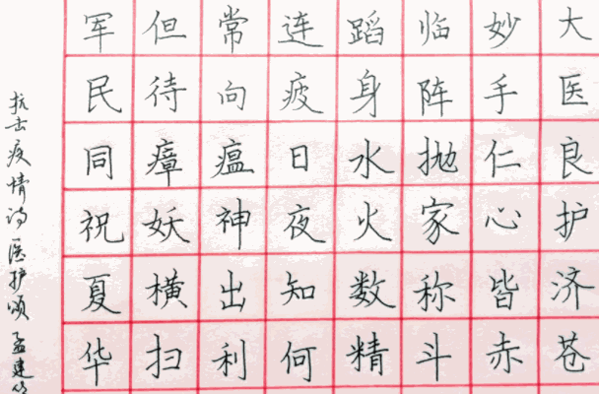 大医良护济苍
妙手仁心皆赤
临阵抛家称斗
蹈身水火数精
连疲日夜知何
常向瘟神出利
但待瘴妖横扫
军民同祝夏华
抗击疫情诗医护颂孟建